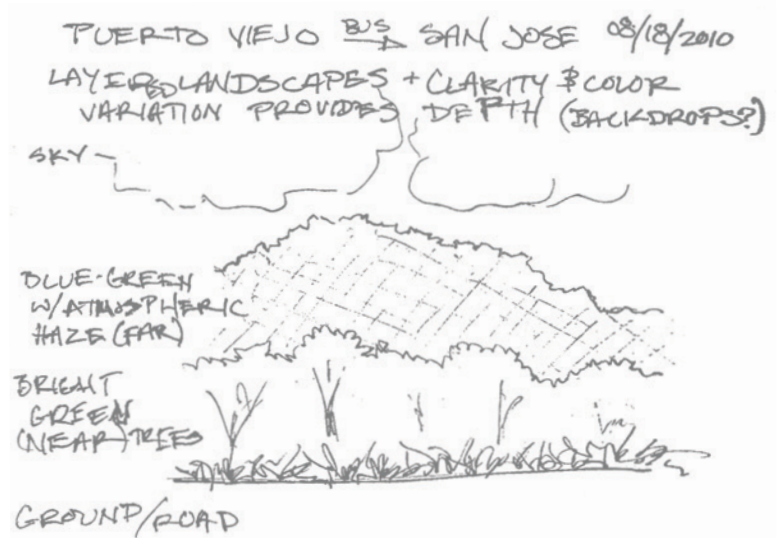 PUERTO VIEJO BUS → SAN JOSE 08/18/2010
LAYERED LANDSCAPES + CLARITY & COLOR
VARIATION PROVIDES DEPTH (BACKDROPS?)
SKY
BLUE-GREEN
W/ATMOSPHERIC
HAZE (FAR)
BRIGHT
GREEN
(NEAR) TREES
GROUND/ROAD